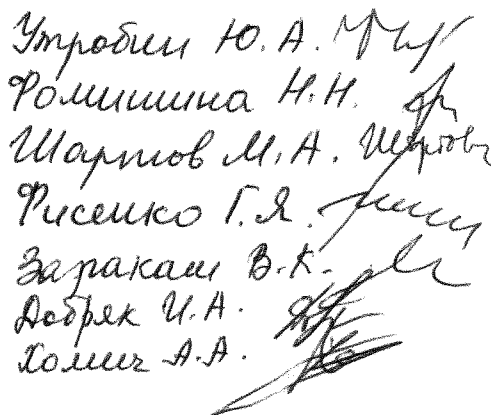 Утробин Ю. А.
Фомишина Н. Н.
Шартов М. А. Шартов
Фисенко Г. Я.
Заракаш В. К.
Добряк И. А.
Хомич А. А.